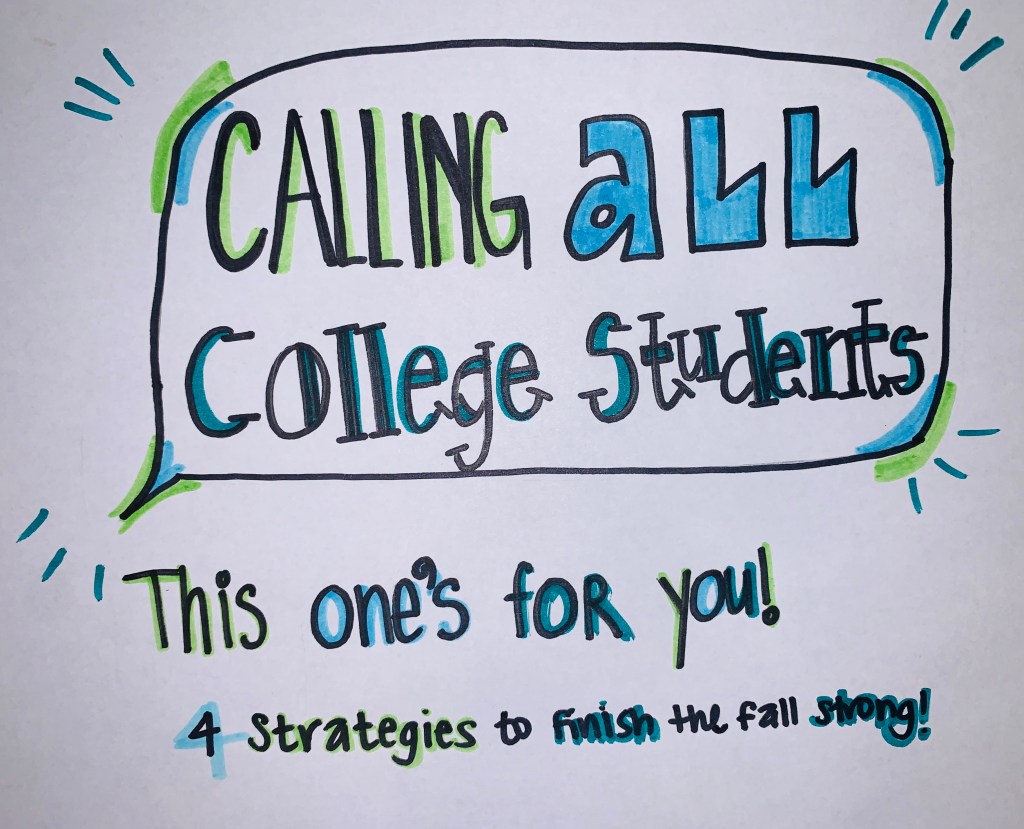 CALLING aLL
College Students
This one's foR you!
4 Strategies to Finish the fall strong!